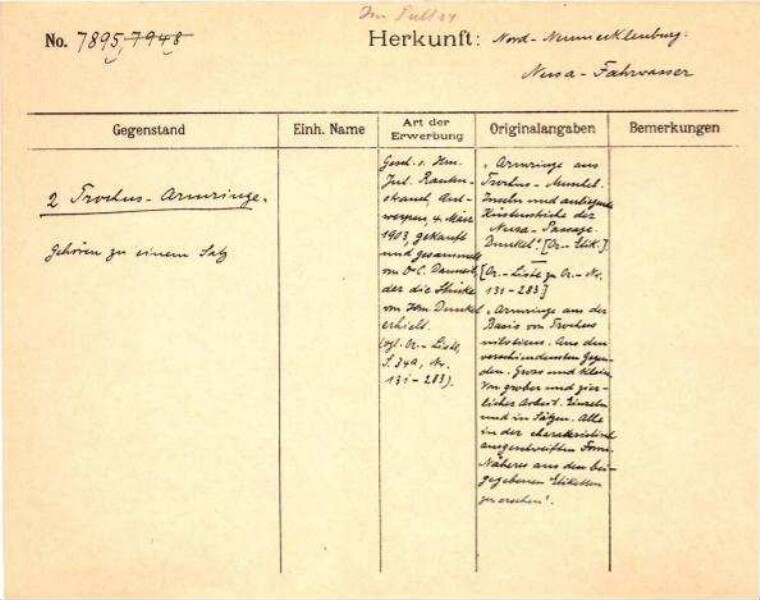 Im Pult 24
No. 7895, 7948
Herkunft: Nord-Neumecklenburg.
Nusa-Fahrwasser
Gegenstand
Einh. Name
Art der
Erwerbung
Originalangaben
Bemerkungen
2 Trochus-Armringe.
Gehören zu einem Satz
Gesch. v. Hrn.
Jul. Rauten-
strauch, Ant-
werpen, 4. März
1903, gekauft
und gesammelt
von Dr C.
der die Stücke
von Hrn. Dunkel
erhielt.
(vgl. Or.-Liste,
S. 34a, Nr.
131-283).
"Armringe aus
Trochus-Muschel.
Inseln und anliegende
Küstenstriche der
Nusa-Passage.
Dunkel". [Or.-Etik.].
[Or.-Liste zu Or.-Nr.
131-283]
"Armringe aus der
Basis von Trochus
niloticus. Aus den
verschiedensten Gegen-
den. Gross und klein
von grober und zier-
licher Arbeit. Einzeln
und in Sätzen. Alle
in der charakteristisch
ausgeschweiften Form.
Näheres aus den bei-
gegebenen Etiketten
zu ersehen".